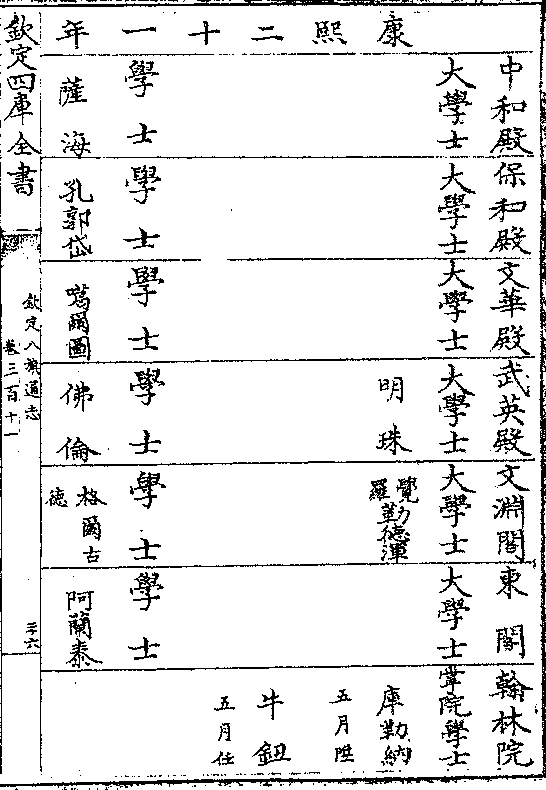 康熙二十一年
中和殿
大學士
學士
薩海
保和殿
大學士
學士
孔郭岱
文華殿
大學士
學士
噶爾圖
武英殿
大學士
明珠
學士
佛倫
文淵閣
大學士
覺羅勒德渾
學士
格爾古德
東閣
大學士
學士
阿蘭泰
翰林院
掌院學士
庫勒納
五月陞
牛鈕
五月任
欽定四庫全書
欽定八旗通志
卷三百十一
三六